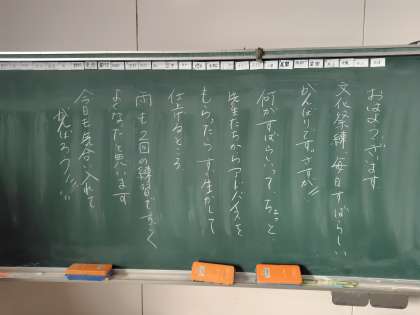 おはようございます
文化祭練 毎日すばらしい
がんばりです。さすが!!
何がすばらしいって、ちょっと
先生たちからアドバイスを
もらったらすぐ生かして
仕上げるところ
雨も2回の練習ですごく
よくなたと思います
今日も気合い入れて
がんばろう!!